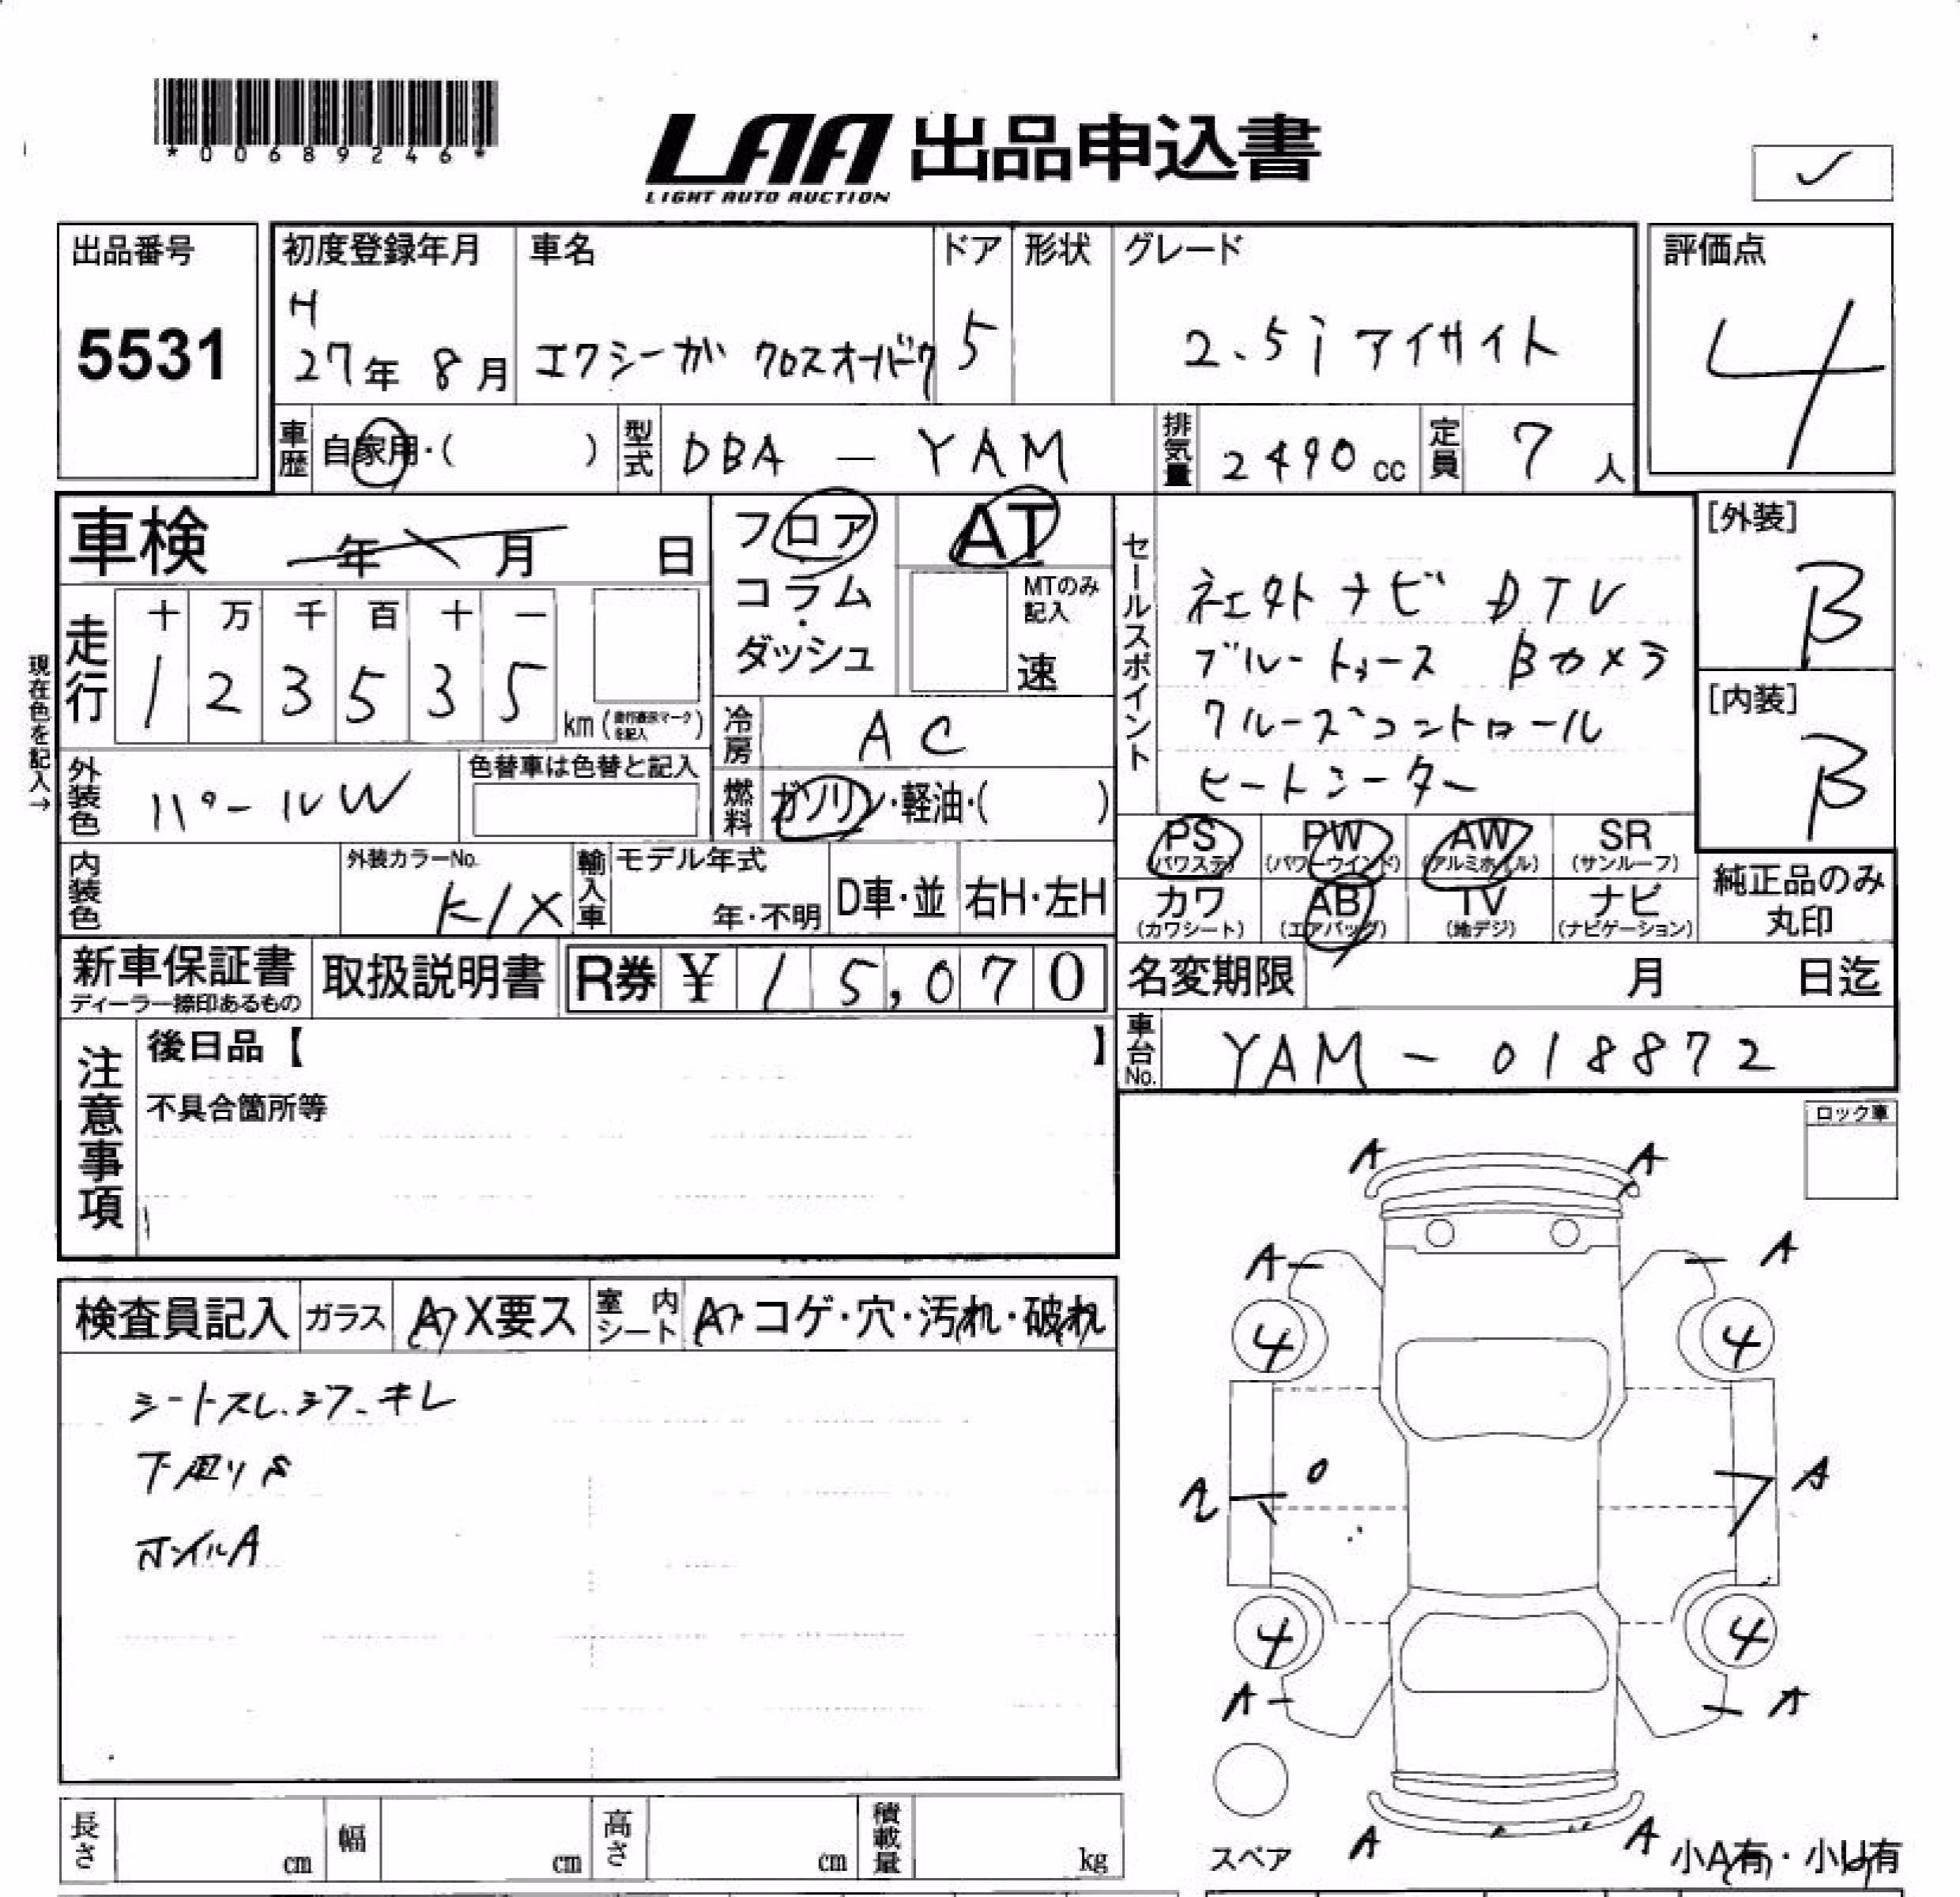 *00689246*
LAA 出品申込書
LIGHT AUTO AUCTION
出品番号
5531
初度登録年月
H
27年 8月
車名
エクシーガ クロスオーバー7
ドア
5
形状
グレード
2.5i アイサイト
評価点
4
車歴
自家用・( )
型式
DBA - YAM
排気量
2490 cc
定員
7 人
車検
年 月 日
フロア
コラム
・
ダッシュ
AT
MTのみ
記入
速
セールスポイント
ナビ DTV
ブルートゥース Bカメラ
クルーズコントロール
ヒートシーター
[外装]
B
[内装]
B
現在色を記入→
走行
十 万 千 百 十 一
1 2 3 5 3 5
km (走行表示マークを記入)
冷房
AC
外装色
パールW
色替車は色替と記入
燃料
ガソリン・軽油・( )
PS
(パワステ)
PW
(パワーウインド)
AW
(アルミホイル)
SR
(サンルーフ)
カワ
(カワシート)
AB
(エアバッグ)
TV
(地デジ)
ナビ
(ナビゲーション)
純正品のみ
丸印
内装色
外装カラーNo.
K1X
輸入車
モデル年式
年・不明
D車・並
右H・左H
新車保証書
ディーラー捺印あるもの
取扱説明書
R券 ¥ 15,070
名変期限
月 日迄
車台No.
YAM - 018872
注意事項
後日品【 】
不具合箇所等
ロック車
検査員記入
ガラス
A・X要ス
室内シート
A・コゲ・穴・汚れ・破れ
シートスレ.シワ.キレ
下廻りS
ホイルA
A A
A A
4 4
A
4 4
A A
A A
スペア
小A有・小U有
長さ
cm
幅
cm
高さ
cm
積載量
kg